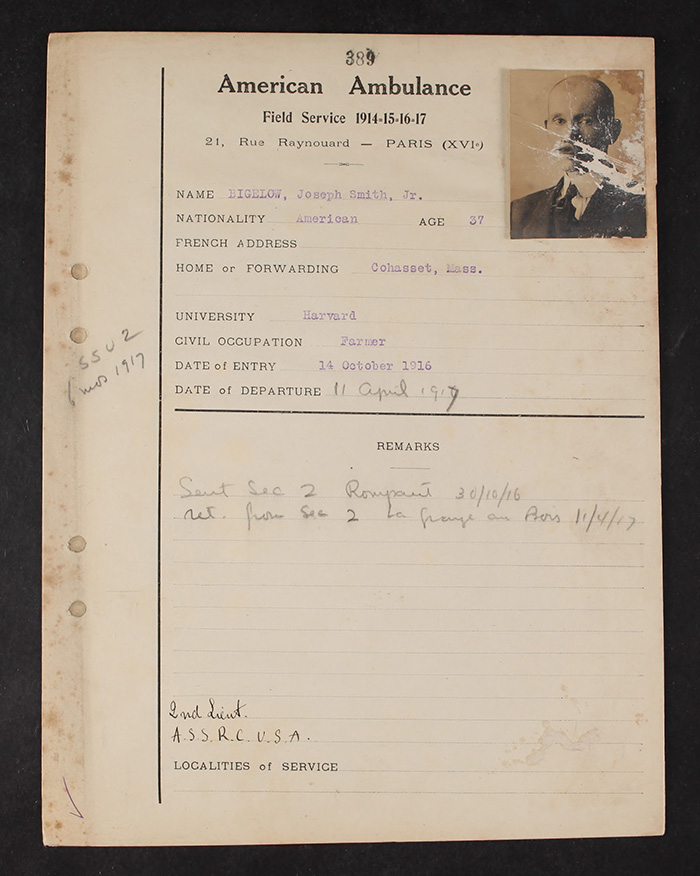 389
American Ambulance
Field Service 1914-15-16-17
21, Rue Raynouard — PARIS (XVIe)
NAME BIGELOW, Joseph Smith, Jr.
NATIONALITY American AGE 37
FRENCH ADDRESS
HOME or FORWARDING Cohasset, Mass.
UNIVERSITY Harvard
CIVIL OCCUPATION Farmer
DATE of ENTRY 14 October 1916
DATE of DEPARTURE 11 April 1917
SSU 2
6 mos 1917
REMARKS
Sent Sec 2 30/10/16
ret. from Sec 2 La Grange au Bois 11/4/17
2nd Lieut.
A.S.S.R.C. U.S.A.
LOCALITIES of SERVICE